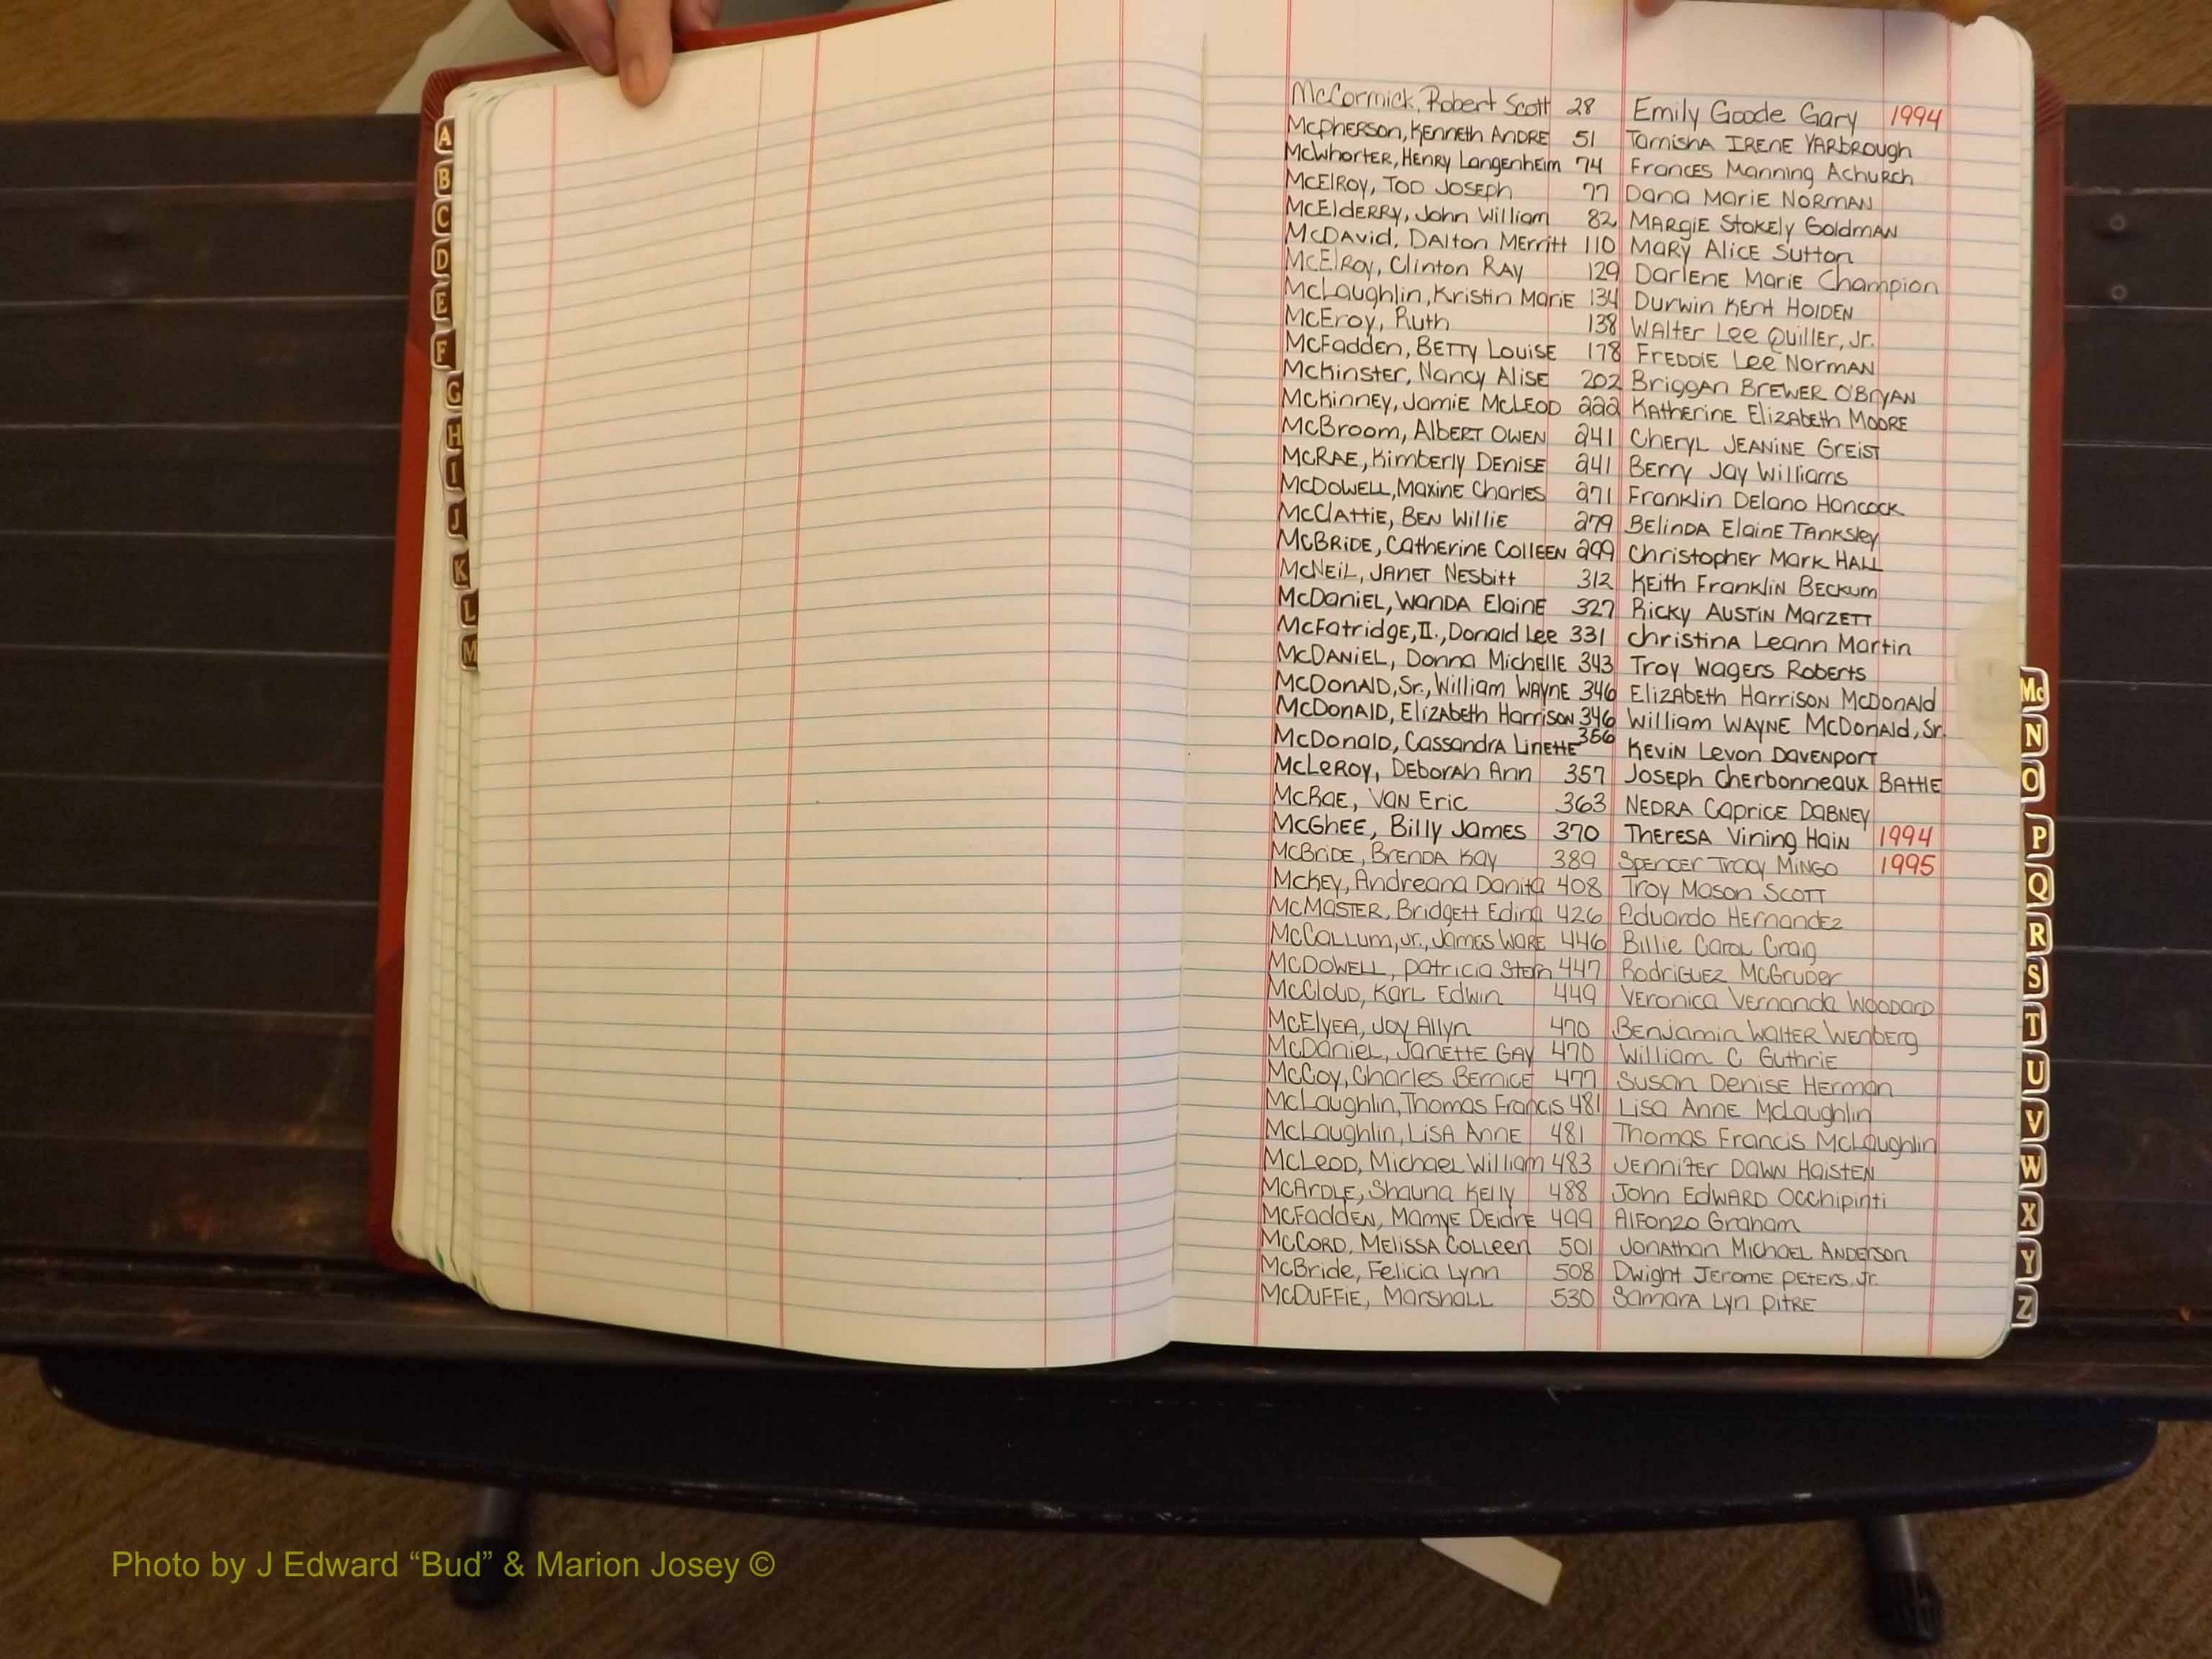 McCormick, Robert Scott 28 Emily Goode Gary 1994
McPherson, Kenneth Andre 51 Tamisha Irene Yarbrough
McWhorter, Henry Langenheim 74 Frances Manning Achurch
McElroy, Tod Joseph 77 Dana Marie Norman
McElderry, John William 82 Margie Stokely Goldman
McDavid, Dalton Merritt 110 Mary Alice Sutton
McElroy, Clinton Ray 129 Darlene Marie Champion
McLaughlin, Kristin Marie 134 Durwin Kent Holden
McEroy, Ruth 138 Walter Lee Quiller, Jr.
McFadden, Betty Louise 178 Freddie Lee Norman
McKinster, Nancy Alise 202 Briggan Brewer O'Bryan
McKinney, Jamie McLeod 222 Katherine Elizabeth Moore
McBroom, Albert Owen 241 Cheryl Jeanine Greist
McRae, Kimberly Denise 241 Berry Jay Williams
McDowell, Maxine Charles 271 Franklin Delano Hancock
McClattie, Ben Willie 279 Belinda Elaine Tanksley
McBride, Catherine Colleen 299 Christopher Mark Hall
McNeil, Janet Nesbitt 312 Keith Franklin Beckum
McDaniel, Wanda Elaine 327 Ricky Austin Marzett
McFatridge, II., Donald Lee 331 Christina Leann Martin
McDaniel, Donna Michelle 343 Troy Wagers Roberts
McDonald, Sr., William Wayne 346 Elizabeth Harrison McDonald
McDonald, Elizabeth Harrison 346 William Wayne McDonald, Sr.
McDonald, Cassandra Linette 356 Kevin Levon Davenport
McLeroy, Deborah Ann 357 Joseph Cherbonneaux Battle
McRae, Van Eric 363 Nedra Caprice Dabney
McGhee, Billy James 370 Theresa Vining Hain 1994
McBride, Brenda Kay 389 Spencer Tracy Mingo 1995
McKey, Andreana Danita 408 Troy Mason Scott
McMaster, Bridgett Edina 426 Eduardo Hernandez
McCollum, Jr., James Ware 446 Billie Carol Craig
McDowell, Patricia Stem 447 Rodriguez McGruder
McCloud, Karl Edwin 449 Veronica Vernanda Woodard
McElyea, Joy Allyn 470 Benjamin Walter Wenberg
McDaniel, Janette Gay 470 William C Guthrie
McCoy, Charles Bernice 477 Susan Denise Herman
McLaughlin, Thomas Francis 481 Lisa Anne McLaughlin
McLaughlin, Lisa Anne 481 Thomas Francis McLaughlin
McLeod, Michael William 483 Jennifer Dawn Haisten
McArdle, Shauna Kelly 488 John Edward Occhipinti
McFadden, Mamye Deidre 499 Alfonzo Graham
McCord, Melissa Colleen 501 Jonathan Michael Anderson
McBride, Felicia Lynn 508 Dwight Jerome Peters, Jr.
McDuffie, Marshall 530 Samara Lyn Pitre
A
B
C
D
E
F
G
H
I
J
K
L
M
Mc
N
O
P
Q
R
S
T
U
V
W
X
Y
Z
Photo by J Edward “Bud” & Marion Josey ©